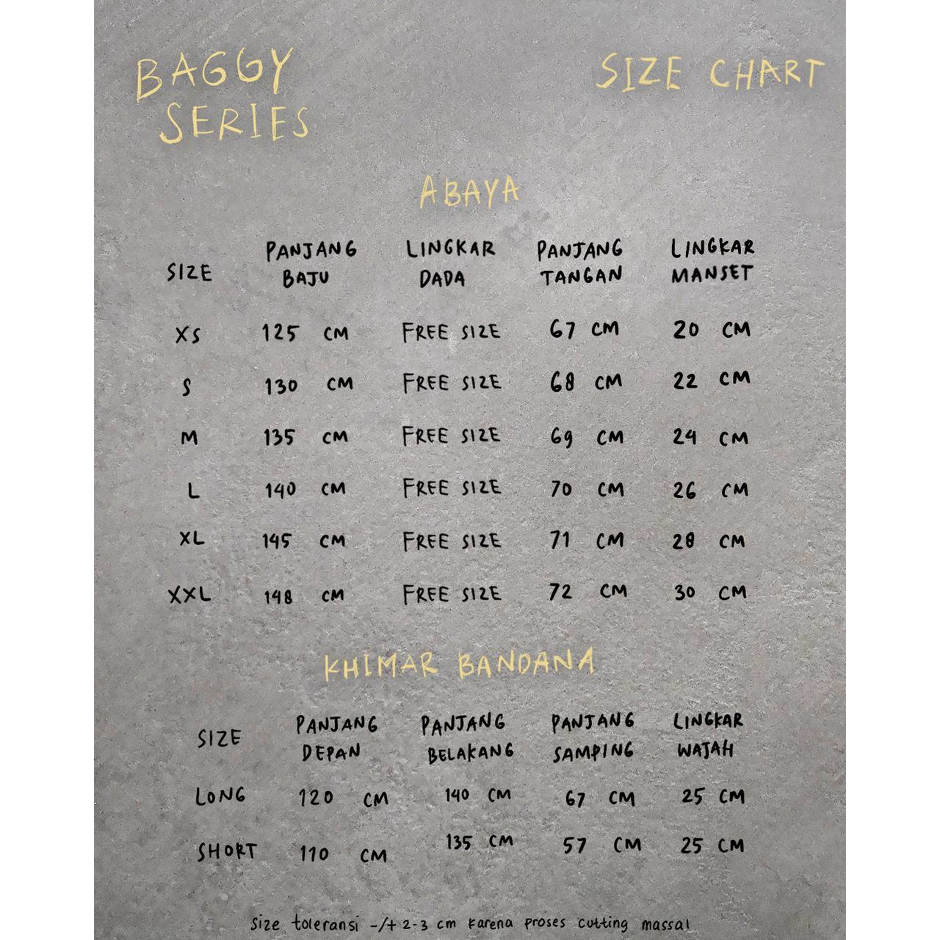 BAGGY SERIES
SIZE CHART
ABAYA
SIZE PANJANG BAJU LINGKAR DADA PANJANG TANGAN LINGKAR MANSET
XS 125 CM FREE SIZE 67 CM 20 CM
S 130 CM FREE SIZE 68 CM 22 CM
M 135 CM FREE SIZE 69 CM 24 CM
L 140 CM FREE SIZE 70 CM 26 CM
XL 145 CM FREE SIZE 71 CM 28 CM
XXL 148 CM FREE SIZE 72 CM 30 CM
KHIMAR BANDANA
SIZE PANJANG DEPAN PANJANG BELAKANG PANJANG SAMPING LINGKAR WAJAH
LONG 120 CM 140 CM 67 CM 25 CM
SHORT 110 CM 135 CM 57 CM 25 CM
Size toleransi -/+ 2-3 cm karena proses cutting massal